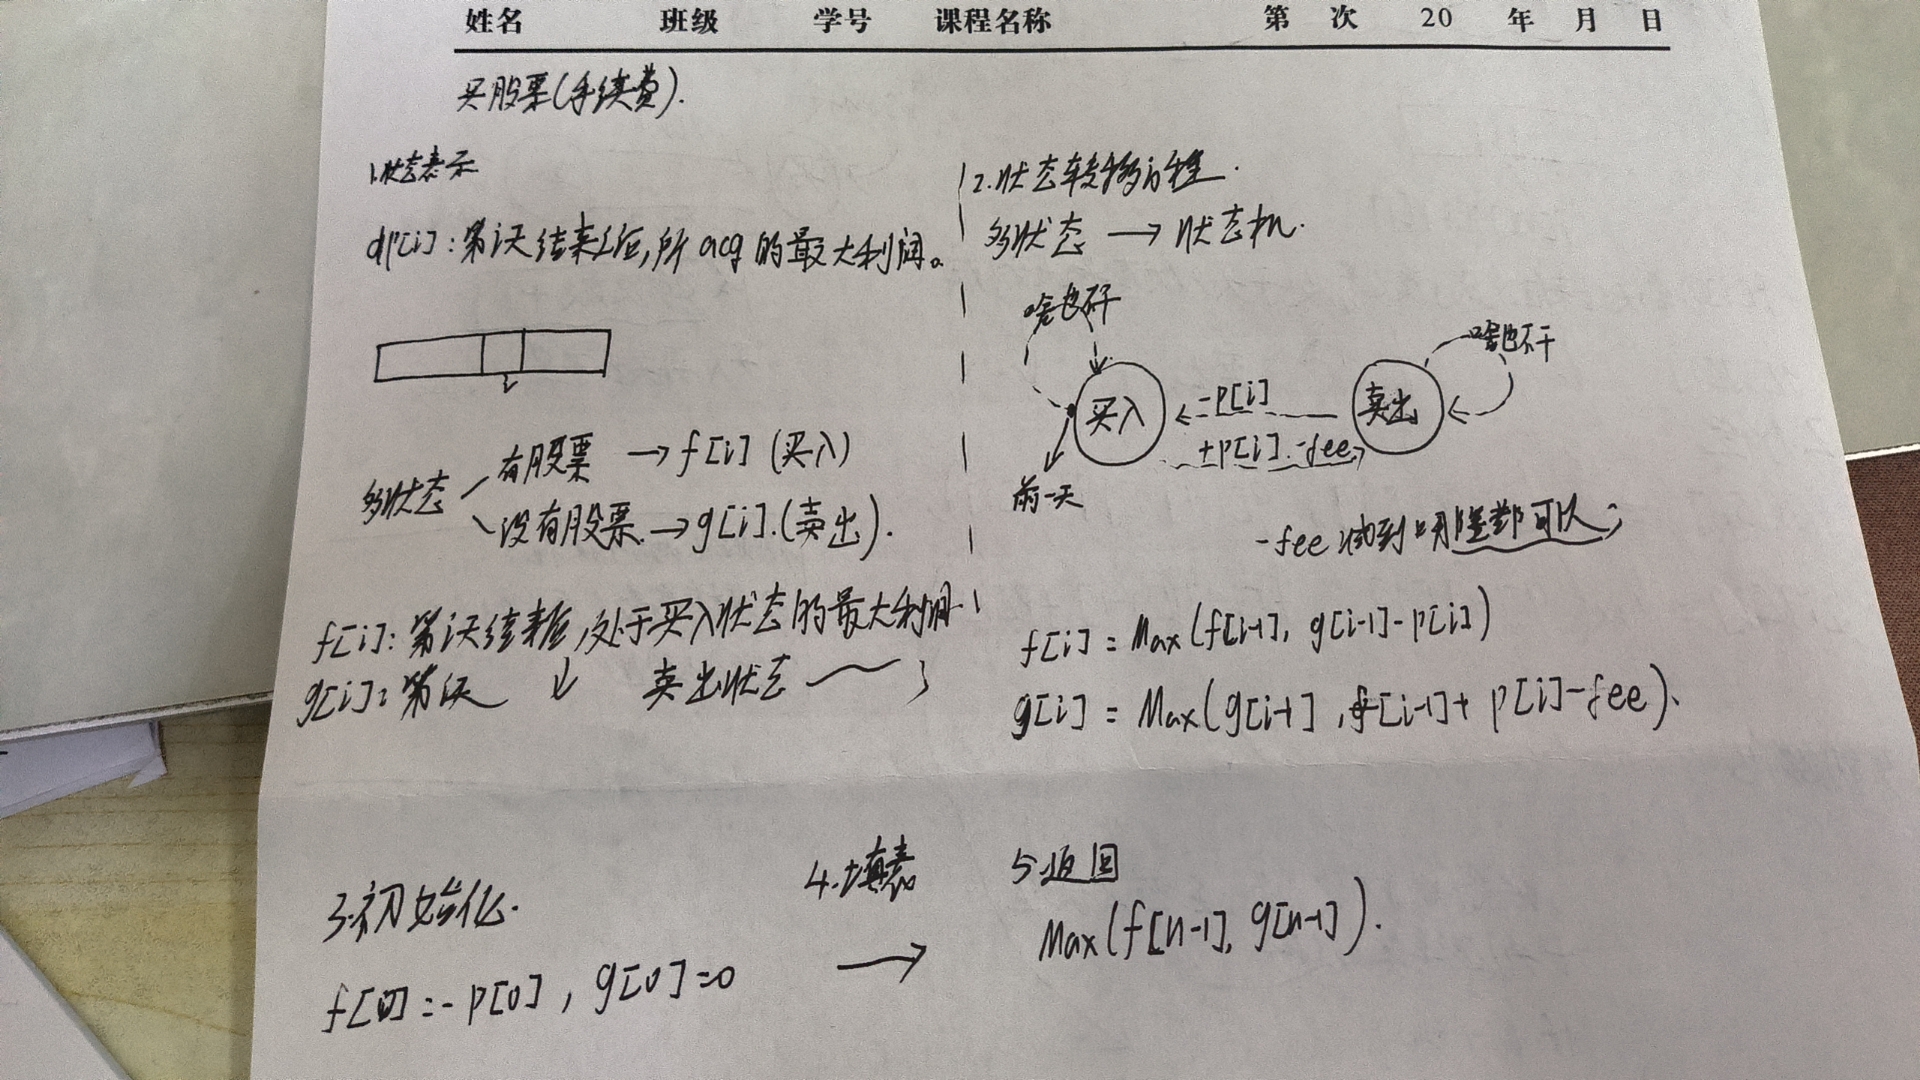 姓名 班级 学号 课程名称 第 次 20 年 月 日
买股票(手续费).
1.状态表示
dp[i]:第i天结束后,所acq的最大利润。
i
多状态
有股票 → f[i] (买入)
没有股票. → g[i].(卖出).
f[i]:第i天结束后,处于买入状态的最大利润.
g[i]:第i天 ↓ 卖出状态
2.状态转移方程.
多状态 → 状态机.
啥也不干
啥也不干
买入
-p[i]
卖出
+p[i].-fee
前一天
-fee 减到哪里都可以;
f[i] = Max(f[i-1], g[i-1]-p[i])
g[i] = Max(g[i-1], f[i-1]+ p[i]-fee).
3.初始化.
f[0] = -p[0], g[0]=0
4.填表
→
5.返回
Max(f[n-1], g[n-1]).